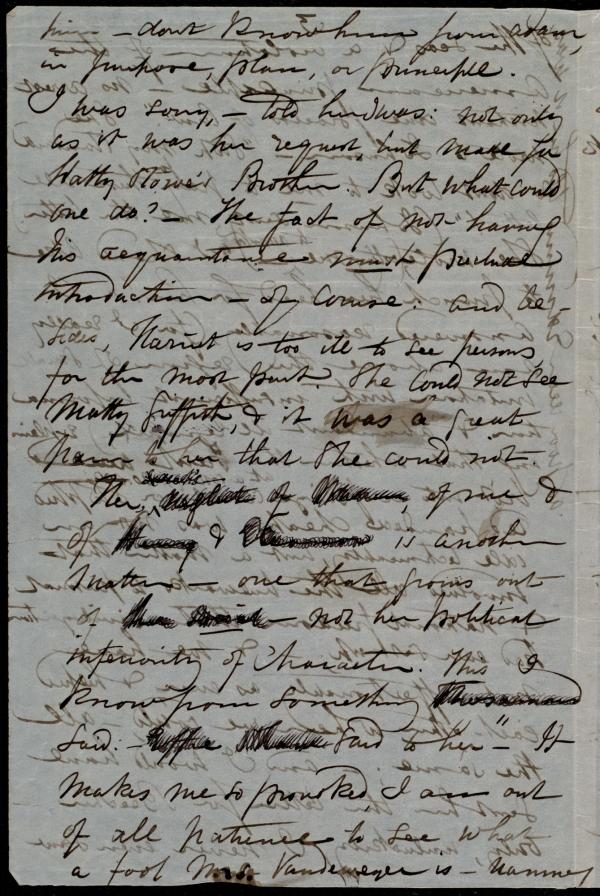 him — dont know him from adam,
in purpose, plan, or principle.
I was sorry, — told her I was: not only
as it was her request, but made for
Hatty Stowe's Brother. But what could
one do? — The fact of not having
his acquaintance must preclude
introduction — of course. and be-
sides, Harriet is too ill to see persons,
for the most part. She could not see
Matty Griffith, & it was a great
pain to her that she could not.
Her, neglect of of me &
of & is another
matter — one that grows out
of — not her political
inferiority of Character. This I
know from something
said: — said to her" — It
makes me so provoked, I am out
of all patience to see what
a fool Mrs. Vandemeyer is —